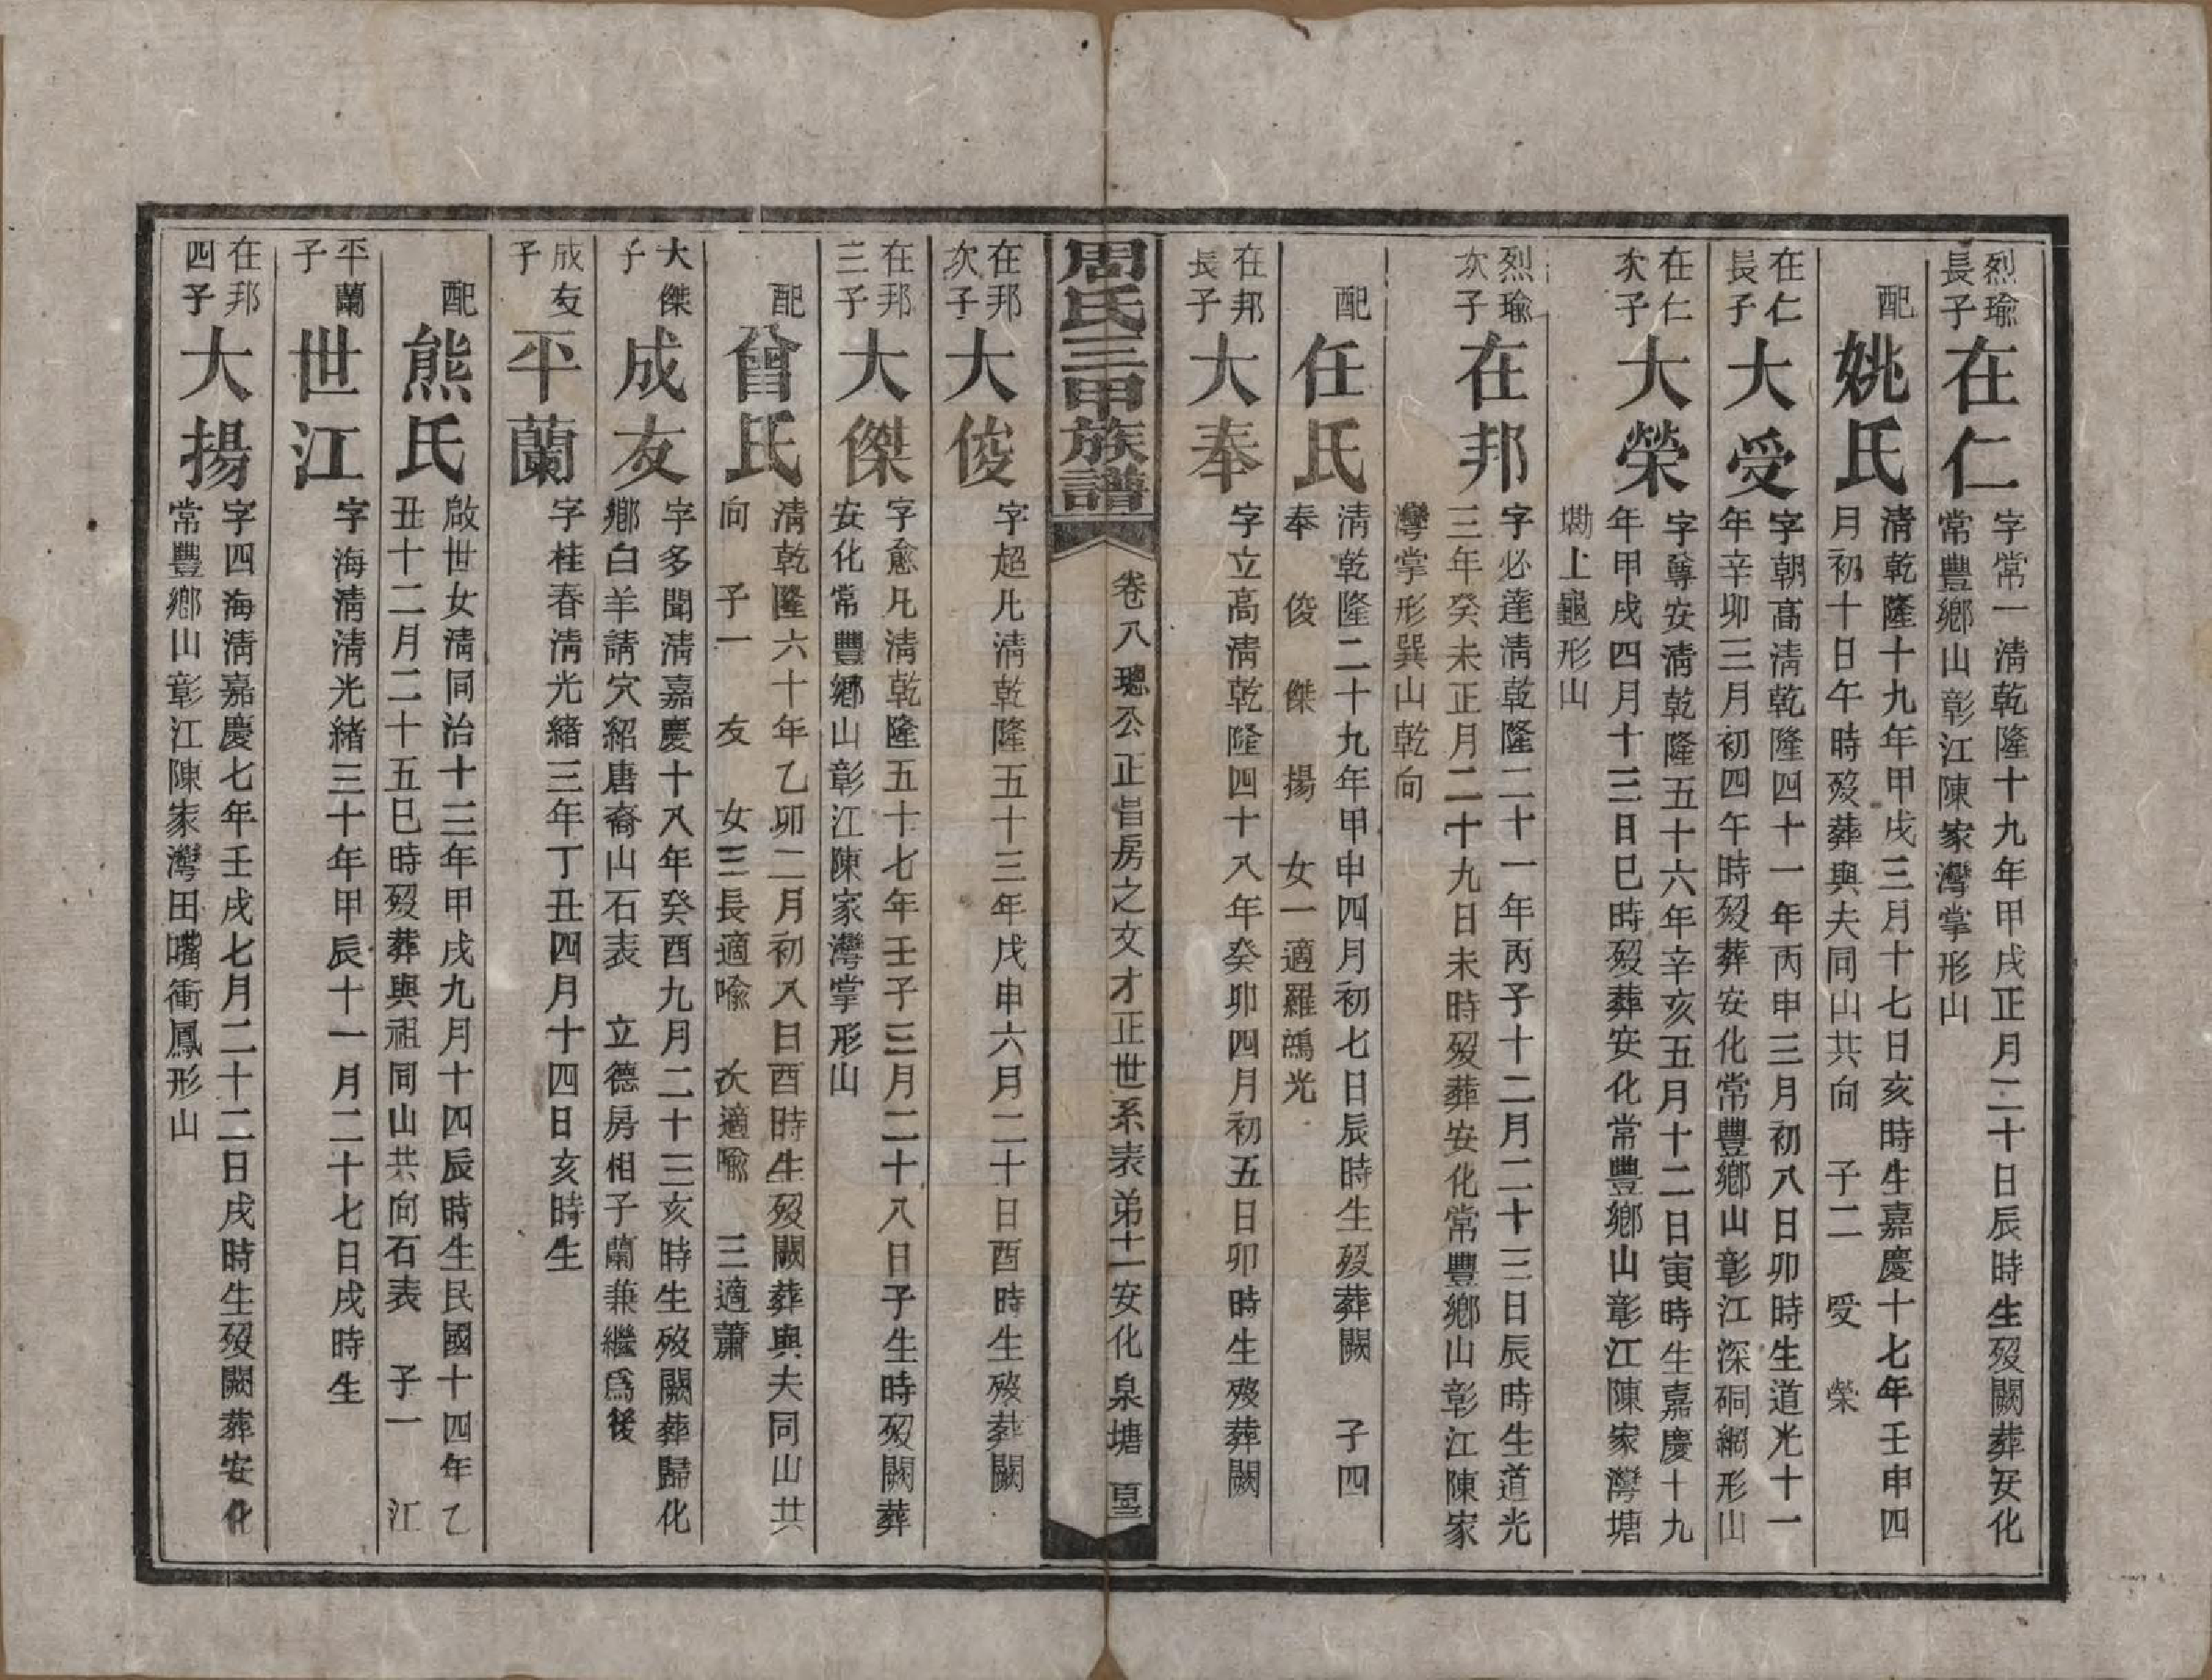 烈瑜
長子
在仁
字常一清乾隆十九年甲戌正月二十日辰時生歿闕葬安化
常豐鄉山彰江陳家灣掌形山
配
姚氏
清乾隆十九年甲戌三月十七日亥時生嘉慶十七年壬申四
月初十日午時歿葬與夫同山共向 子二 受 榮
在仁
長子
大受
字朝高清乾隆四十一年丙申三月初八日卯時生道光十一
年辛卯三月初四午時歿葬安化常豐鄉山彰江深硐網形山
在仁
次子
大榮
字尊安清乾隆五十六年辛亥五月十二日寅時生嘉慶十九
年甲戌四月十三日巳時歿葬安化常豐鄉山彰江陳家灣塘
墈上龜形山
烈瑜
次子
在邦
字必達清乾隆二十一年丙子十二月二十三日辰時生道光
三年癸未正月二十九日未時歿葬安化常豐鄉山彰江陳家
灣掌形巽山乾向
配
任氏
清乾隆二十九年甲申四月初七日辰時生歿葬闕 子四
奉 俊 傑 揚 女一適羅鴻光
在邦
長子
大奉
字立高清乾隆四十八年癸卯四月初五日卯時生歿葬闕
周氏三甲族譜
卷八璁公正昌房之文才正世系表弟十一安化泉塘
在邦
次子
大俊
字超凡清乾隆五十三年戊申六月二十日酉時生歿葬闕
在邦
三子
大傑
字愈凡清乾隆五十七年壬子三月二十八日子生時歿闕葬
安化常豐鄉山彰江陳家灣掌形山
配
曾氏
清乾隆六十年乙卯二月初八日酉時生歿闕葬與夫同山共
向 子一 友 女三長適喻 次適喻 三適蕭
大傑
子
成友
字多聞清嘉慶十八年癸酉九月二十三亥時生歿闕葬歸化
鄉白羊請穴紹唐裔山石表 立德房相子蘭兼繼爲後
成友
子
平蘭
字桂春清光緒三年丁丑四月十四日亥時生
配
熊氏
啟世女清同治十三年甲戌九月十四辰時生民國十四年乙
丑十二月二十五巳時歿葬與祖同山共向石表 子一 江
平蘭
子
世江
字海清清光緒三十年甲辰十一月二十七日戌時生
在邦
四子
大揚
字四海清嘉慶七年壬戌七月二十二日戌時生歿闕葬安化
常豐鄉山彰江陳家灣田嘴衝鳳形山